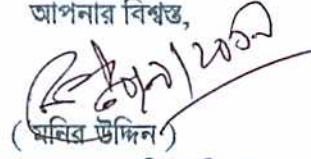 আপনার বিশ্বস্ত,
( মনির উদ্দিন )